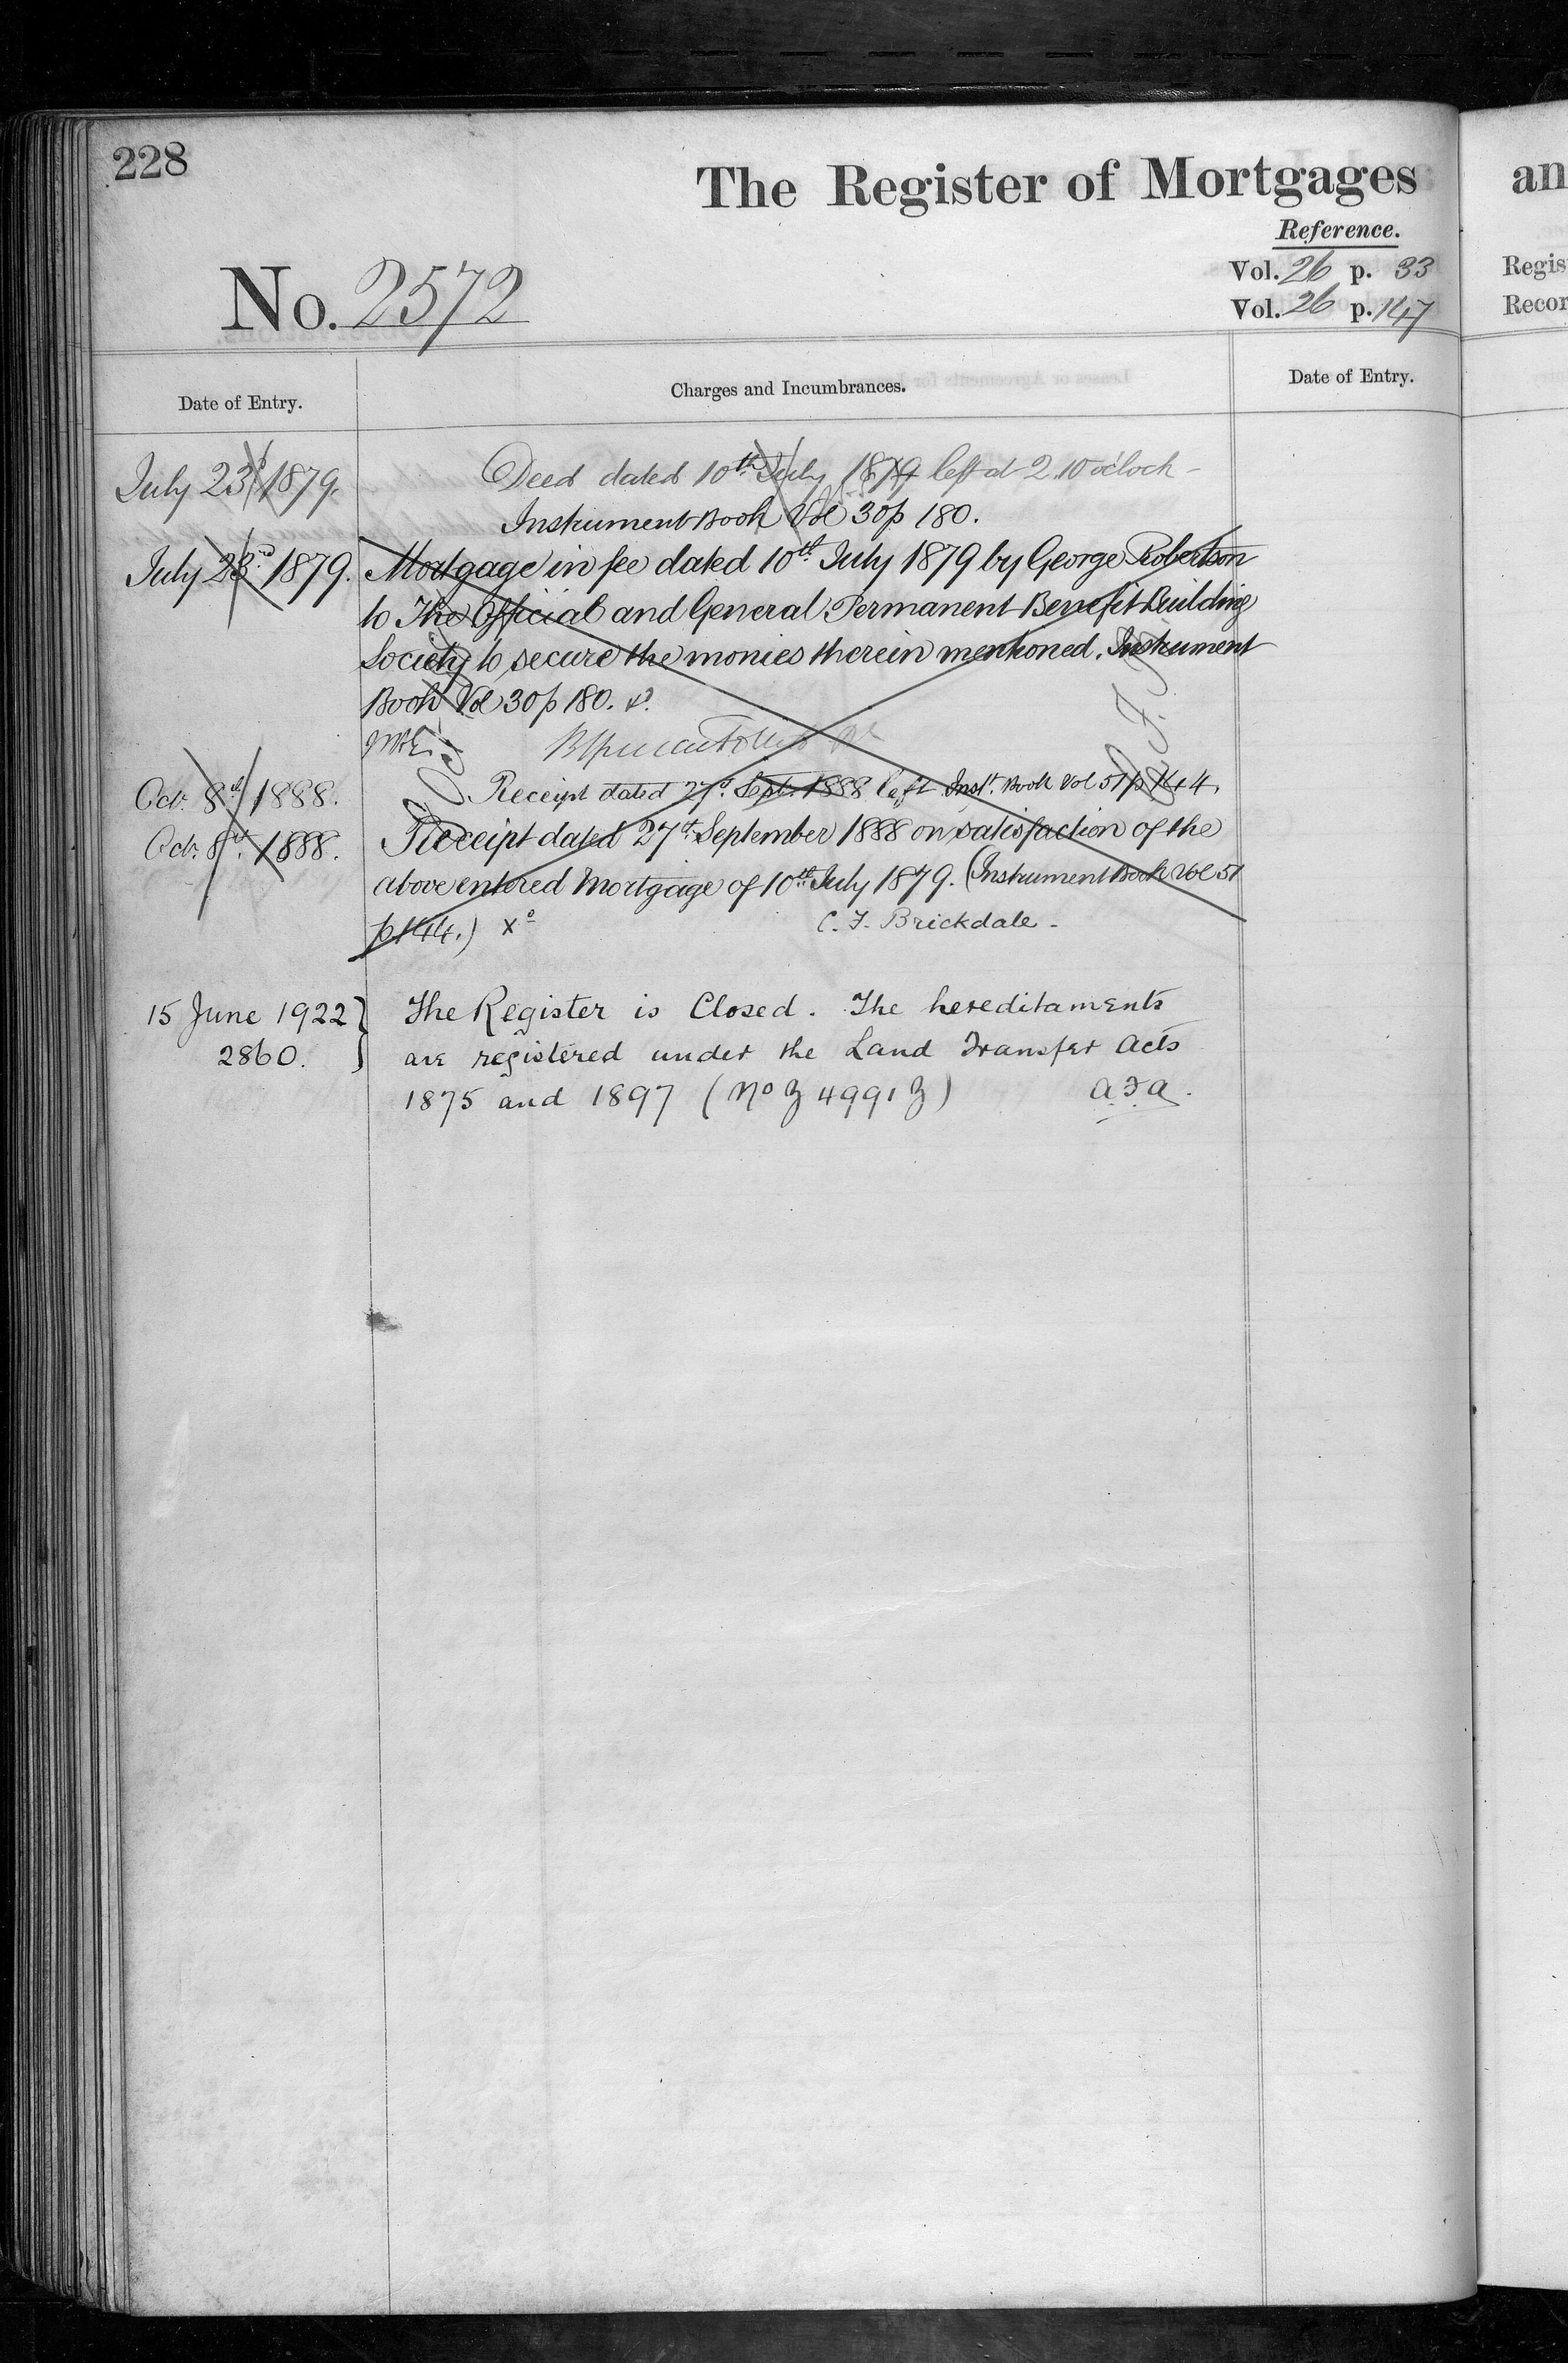 228
The Register of Mortgages
an
Reference.
Vol. 26 p. 33
Regis
No. 2572
Vol. 26 p. 147
Recor
Date of Entry.
Charges and Incumbrances.
Date of Entry.
July 23d 1879.
Deed dated 10th July 1879 left at 2.10 o'clock -
Instrument Book Vol 30 p 180.
July 23rd 1879.
Mortgage in fee dated 10th July 1879 by George Robertson
to The Official and General Permanent Benefit Building
Society to secure the monies therein mentioned. Instrument
Book Vol 30 p 180.
Oct. 8th 1888.
Receipt dated 27th Sept. 1888 left Inst. Book Vol 51 p 144.
Oct. 8th 1888.
Receipt dated 27th September 1888 on satisfaction of the
above entered Mortgage of 10th July 1879. (Instrument Book Vol 51
p 144.) xo
C. F. Brickdale -
15 June 1922
The Register is Closed. The hereditaments
2860.
are registered under the Land Transfer Acts
1875 and 1897 (No Z 4991 Z)
A.F.A.